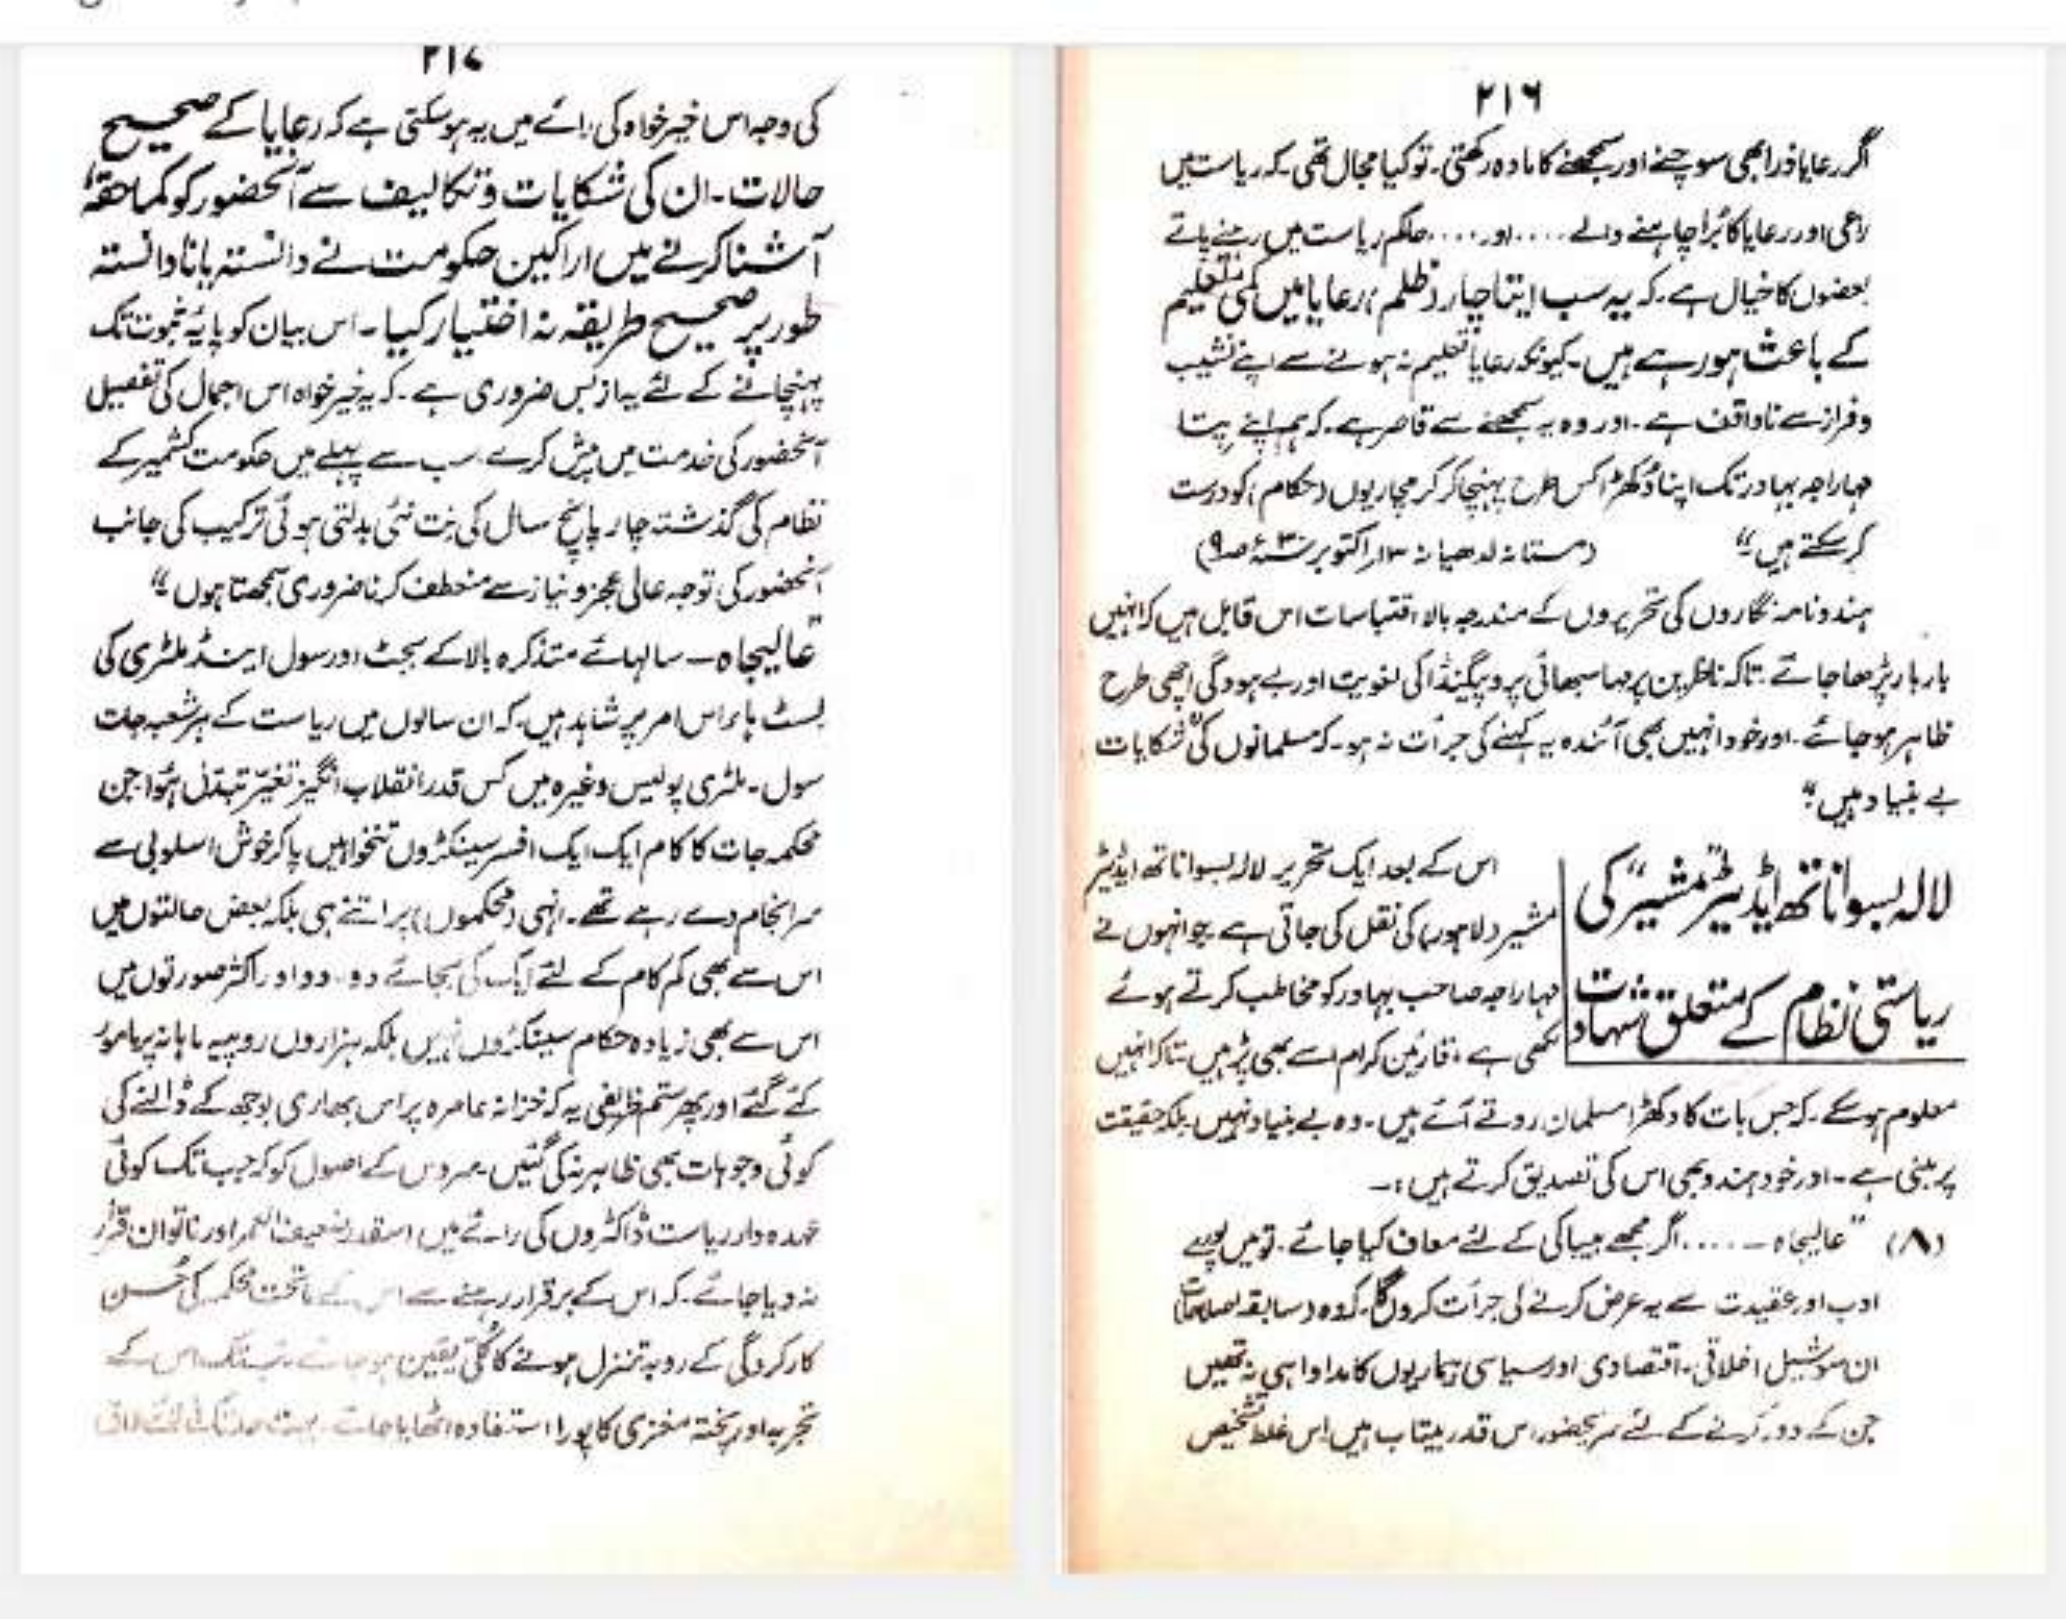 ۲۱۶
اگر رعایا ذرا بھی سوچنے اور سمجھنے کا مادہ رکھتی۔ تو کیا مجال تھی۔ کہ ریاست میں
راعی اور رعایا کا بُرا چاہنے والے .... اور .... حاکم ریاست میں رہنے پاتے
بعضوں کا خیال ہے۔ کہ یہ سب ایتاچار (ظلم) رعایا میں کمی تعلیم
کے باعث ہو رہے ہیں۔ کیونکہ رعایا تعلیم نہ ہونے سے اپنے نشیب
و فراز سے ناواقف ہے۔ اور وہ یہ سمجھنے سے قاصر ہے۔ کہ ہم اپنے پتا
مہاراجہ بہادر تک اپنا دُکھڑا کس طرح پہنچا کر کرمچاریوں (حکام) کو درست
کر سکتے ہیں“ (مستانہ لدھیانہ ۱۳ اکتوبر ۳۰ء ص۹)
ہندو نامہ نگاروں کی تحریروں کے مندرجہ بالا اقتباسات اس قابل ہیں کہ انہیں
بار بار پڑھا جائے۔ تاکہ ناظرین پر مہاسبھائی پروپیگنڈا کی لغویت اور بے ہودگی اچھی طرح
ظاہر ہو جائے۔ اور خود انہیں بھی آئندہ یہ کہنے کی جرأت نہ ہو۔ کہ مسلمانوں کی شکایات
بے بنیاد ہیں“
لالہ بسواناتھ ایڈیٹر ”مشیر“ کی
ریاستی نظام کے متعلق شہادت
اس کے بعد ایک تحریر لالہ بسواناتھ ایڈیٹر
مشیر (لاہور) کی نقل کی جاتی ہے۔ جو انہوں نے
مہاراجہ صاحب بہادر کو مخاطب کرتے ہوئے
لکھی ہے۔ قارئین کرام اسے بھی پڑہیں تاکہ انہیں
معلوم ہو سکے۔ کہ جس بات کا دکھڑا مسلمان روتے آئے ہیں۔ وہ بے بنیاد نہیں بلکہ حقیقت
پر مبنی ہے۔ اور خود ہندو بھی اس کی تصدیق کرتے ہیں:۔
(۸) ”عالیجاہ ۔.... اگر مجھے بیباکی کے لئے معاف کیا جائے۔ تو میں پورے
ادب اور عقیدت سے یہ عرض کرنے کی جرأت کروں گا۔ کہ وہ (سابقہ اصلاحات)
ان سوشیل اخلاقی۔ اقتصادی اور سیاسی بیماریوں کا مداوا ہی نہ تھیں
جن کے دور کرنے کے لئے سر بحضور اس قدر بیتاب ہیں اس غلط تشخیص
۲۱۷
کی وجہ اس خیرخواہ کی رائے میں یہ ہو سکتی ہے کہ رعایا کے صحیح
حالات۔ ان کی شکایات و تکالیف سے آنحضور کو کماحقہٗ
آشنا کرنے میں اراکین حکومت نے دانستہ یا نادانستہ
طور پر صحیح طریقہ نہ اختیار کیا۔ اس بیان کو پایۂ ثبوت تک
پہنچانے کے لئے یہ ازبس ضروری ہے۔ کہ یہ خیرخواہ اس اجمال کی تفصیل
آنحضور کی خدمت میں پیش کرے۔ سب سے پہلے میں حکومت کشمیر کے
نظام کی گذشتہ چار پانچ سال کی نِت نئی بدلتی ہوئی ترکیب کی جانب
آنحضور کی توجہ عالی عجز و نیاز سے منعطف کرنا ضروری سمجھتا ہوں“
”عالیجاہ۔ سالہائے متذکرہ بالا کے بجٹ اور سول اینڈ ملٹری کی
لسٹ ہا، اس امر پر شاہد ہیں۔ کہ ان سالوں میں ریاست کے ہر شعبہ جات
سول۔ ملٹری پولیس وغیرہ میں کس قدر انقلاب انگیز تغیّر تبدّل ہُوا جن
محکمہ جات کا کام ایک ایک افسر سینکڑوں تنخواہیں پا کر خوش اسلوبی سے
سرانجام دے رہے تھے۔ انہی (محکموں) پر اتنے ہی بلکہ بعض حالتوں میں
اس سے بھی کم کام کے لئے ایک کی بجائے دو۔ دو اور اکثر صورتوں میں
اس سے بھی زیادہ حکام سینکڑوں نہیں بلکہ ہزاروں روپیہ ماہانہ پر مامور
کئے گئے اور پھر ستم ظریفی یہ کہ خزانہ عامرہ پر اس بھاری بوجھ کے ڈالنے کی
کوئی وجوہات بھی ظاہر نہ کی گئیں۔ سروس کے اصول کو کہ جب تک کوئی
عہدہ دار ریاست ڈاکٹروں کی رائے میں اسقدر ضعیف العمر اور ناتوان قرار
نہ دیا جائے۔ کہ اس کے برقرار رہنے سے اس کے ماتحت محکمہ کی حُسن
کارکردگی کے روبہ تنزل ہونے کا کُلّی یقین ہو جائے۔ تب تک اس کے
تجربہ اور پختہ مغزی کا پورا استفادہ اٹھایا جائے۔ بہت حد تک